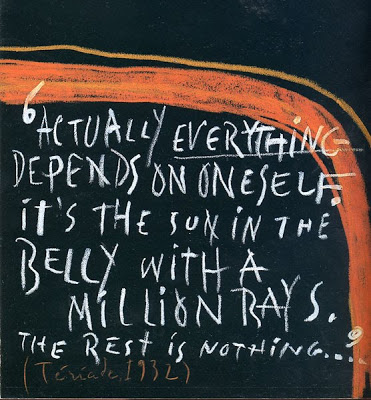 ‘ACTUALLY EVERYTHING
DEPENDS ON ONESELF.
iT'S THE SUN iN THE
BELLY WiTH A
MiLLiON RAYS.
THE REST iS NOTHiNG....’
(Tériade, 1932)